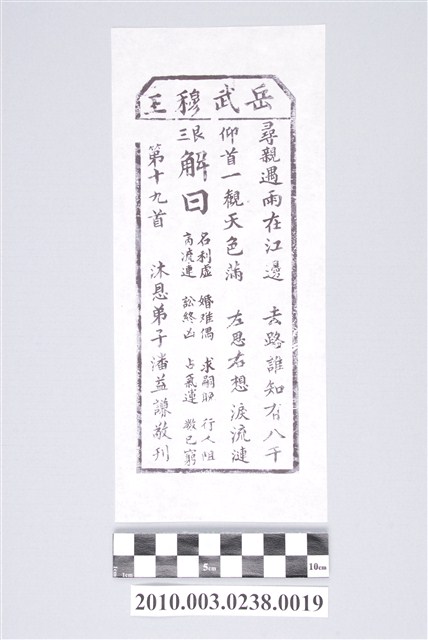 岳武穆王
尋親遇雨在江邊 去路誰知有八千
仰首一觀天色滿 左思右想淚流漣
艮三
解曰
名利虛 婚难偶 求嗣 行人阻
高流連 訟終凶 占氣運 数已窮
第十九首 沐恩弟子潘益謙敬刊
1cm 5cm 10cm
2010.003.0238.0019